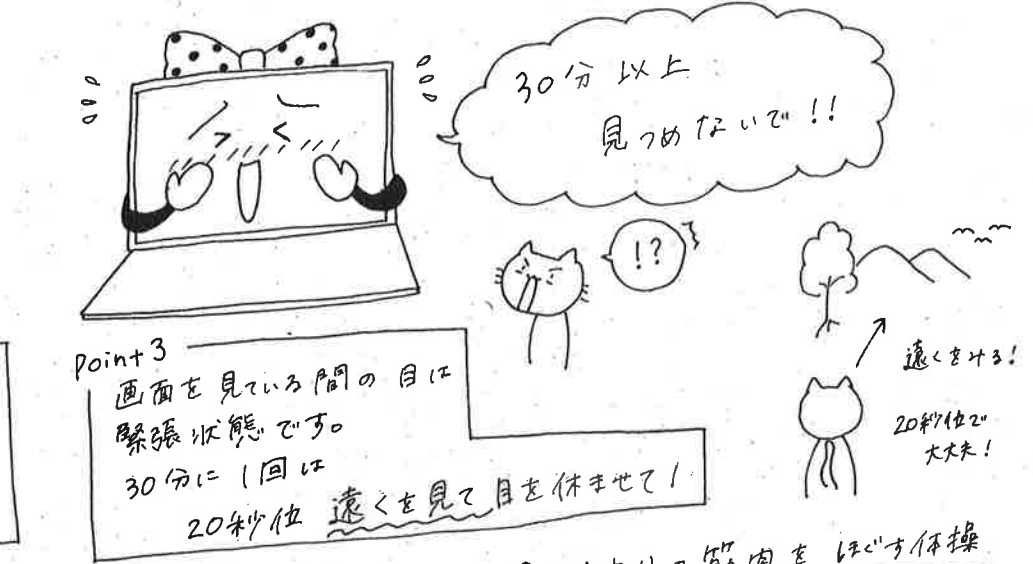 30分以上
見つめないで!!
!?
point 3
画面を見ている間の目は
緊張状態です。
30分に1回は
20秒位 遠くを見て目を休ませて!
遠くをみる!
20秒位で
大丈夫!
筋肉をほぐす体操